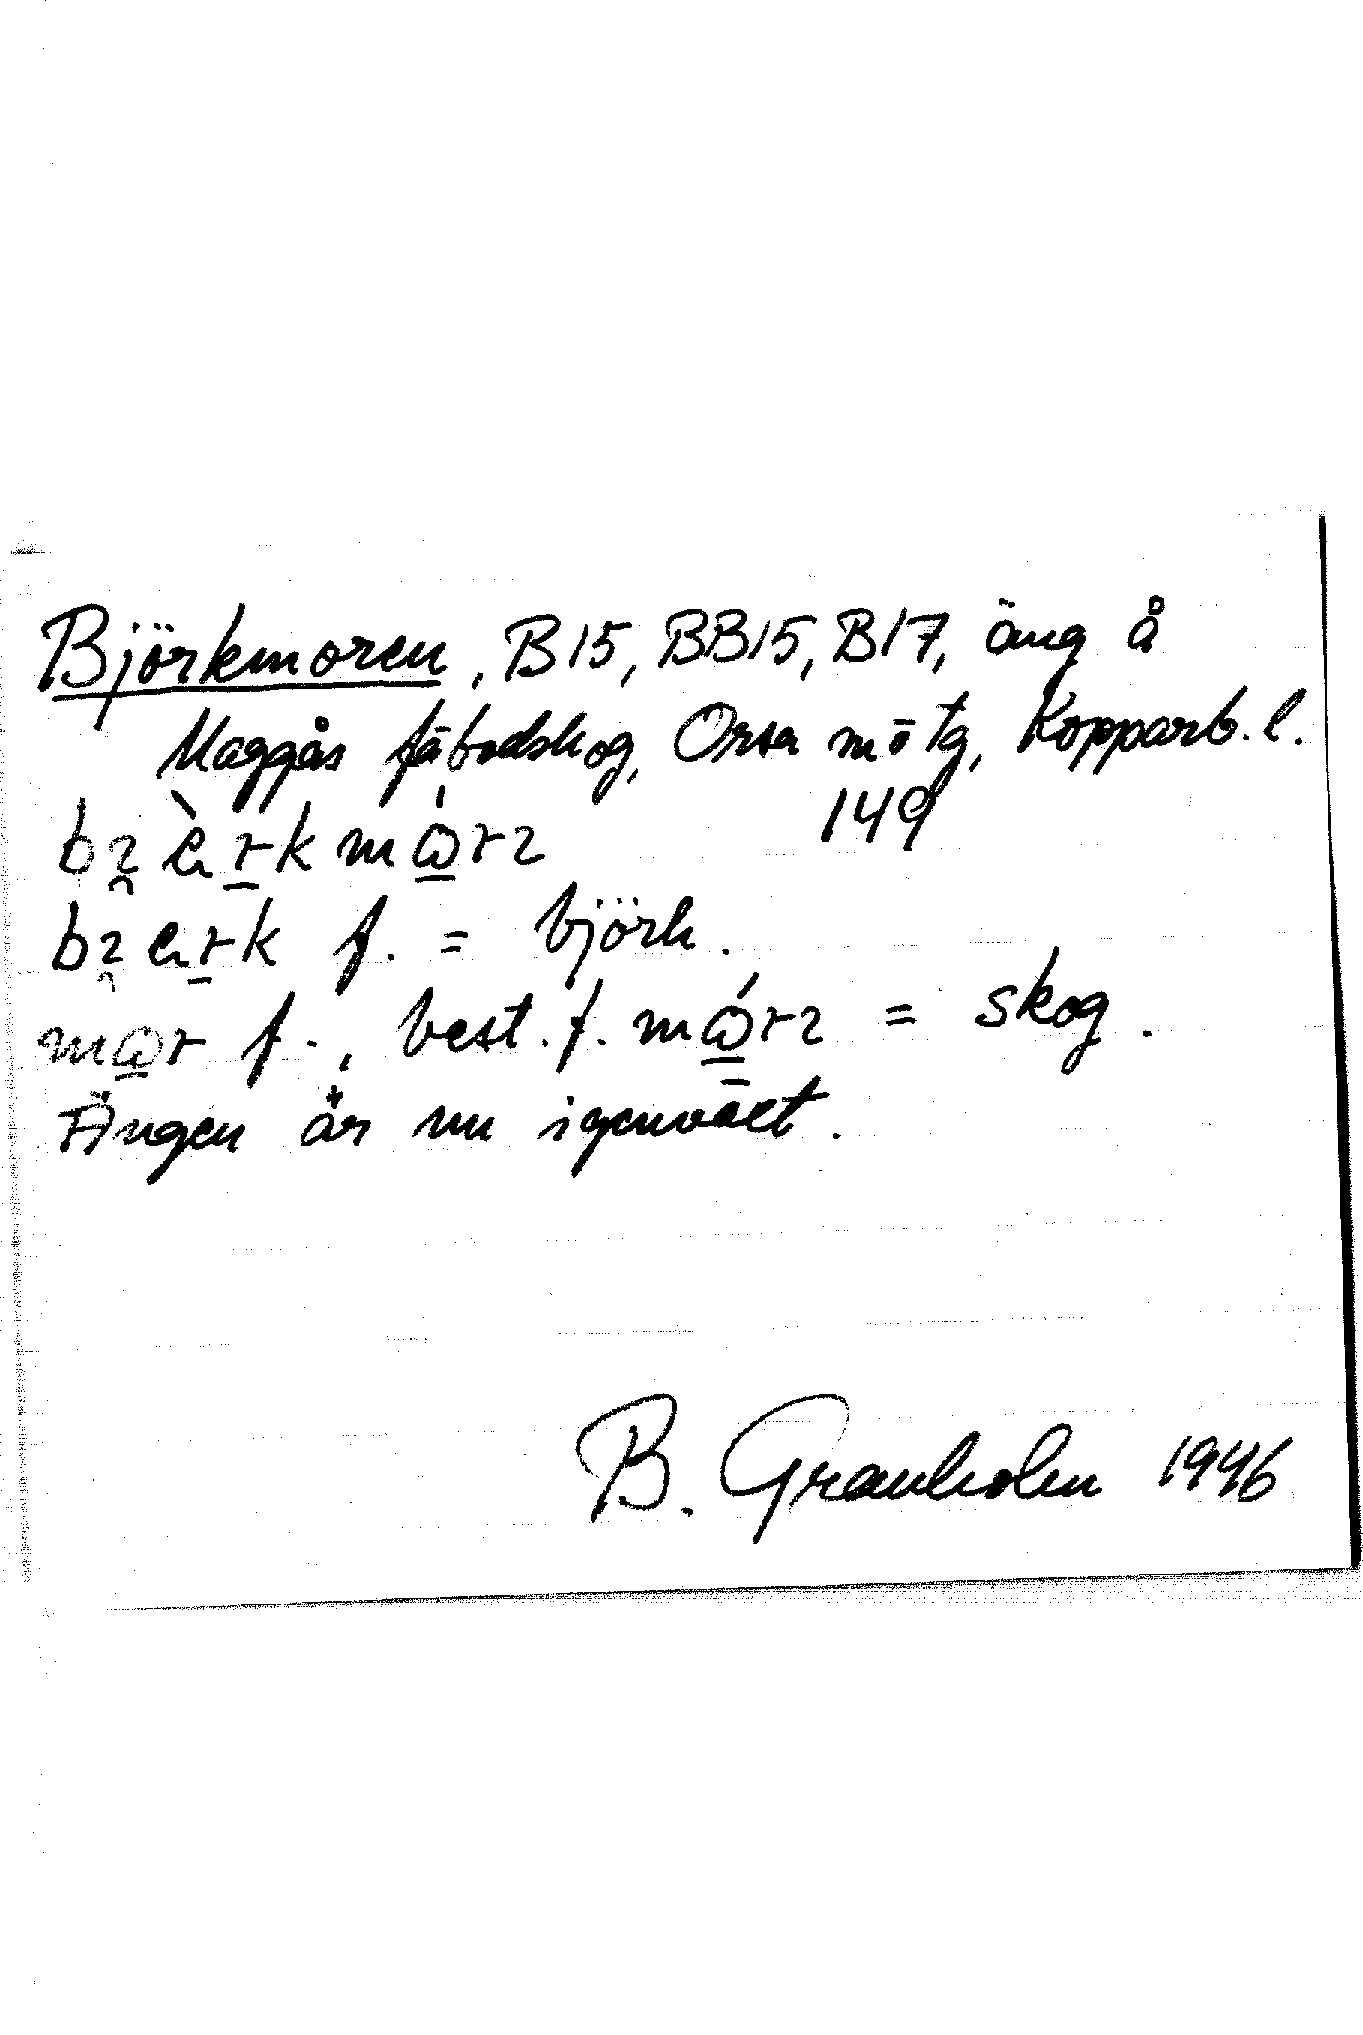 Björkmoren, B15, BB15, B17, äng å
Maggås fäbodskog, Orsa mötg, Kopparb. l.
149
f. = björk.
f., best. f. = skog.
Ängen är nu igenväxt.
B. Granholm 1946